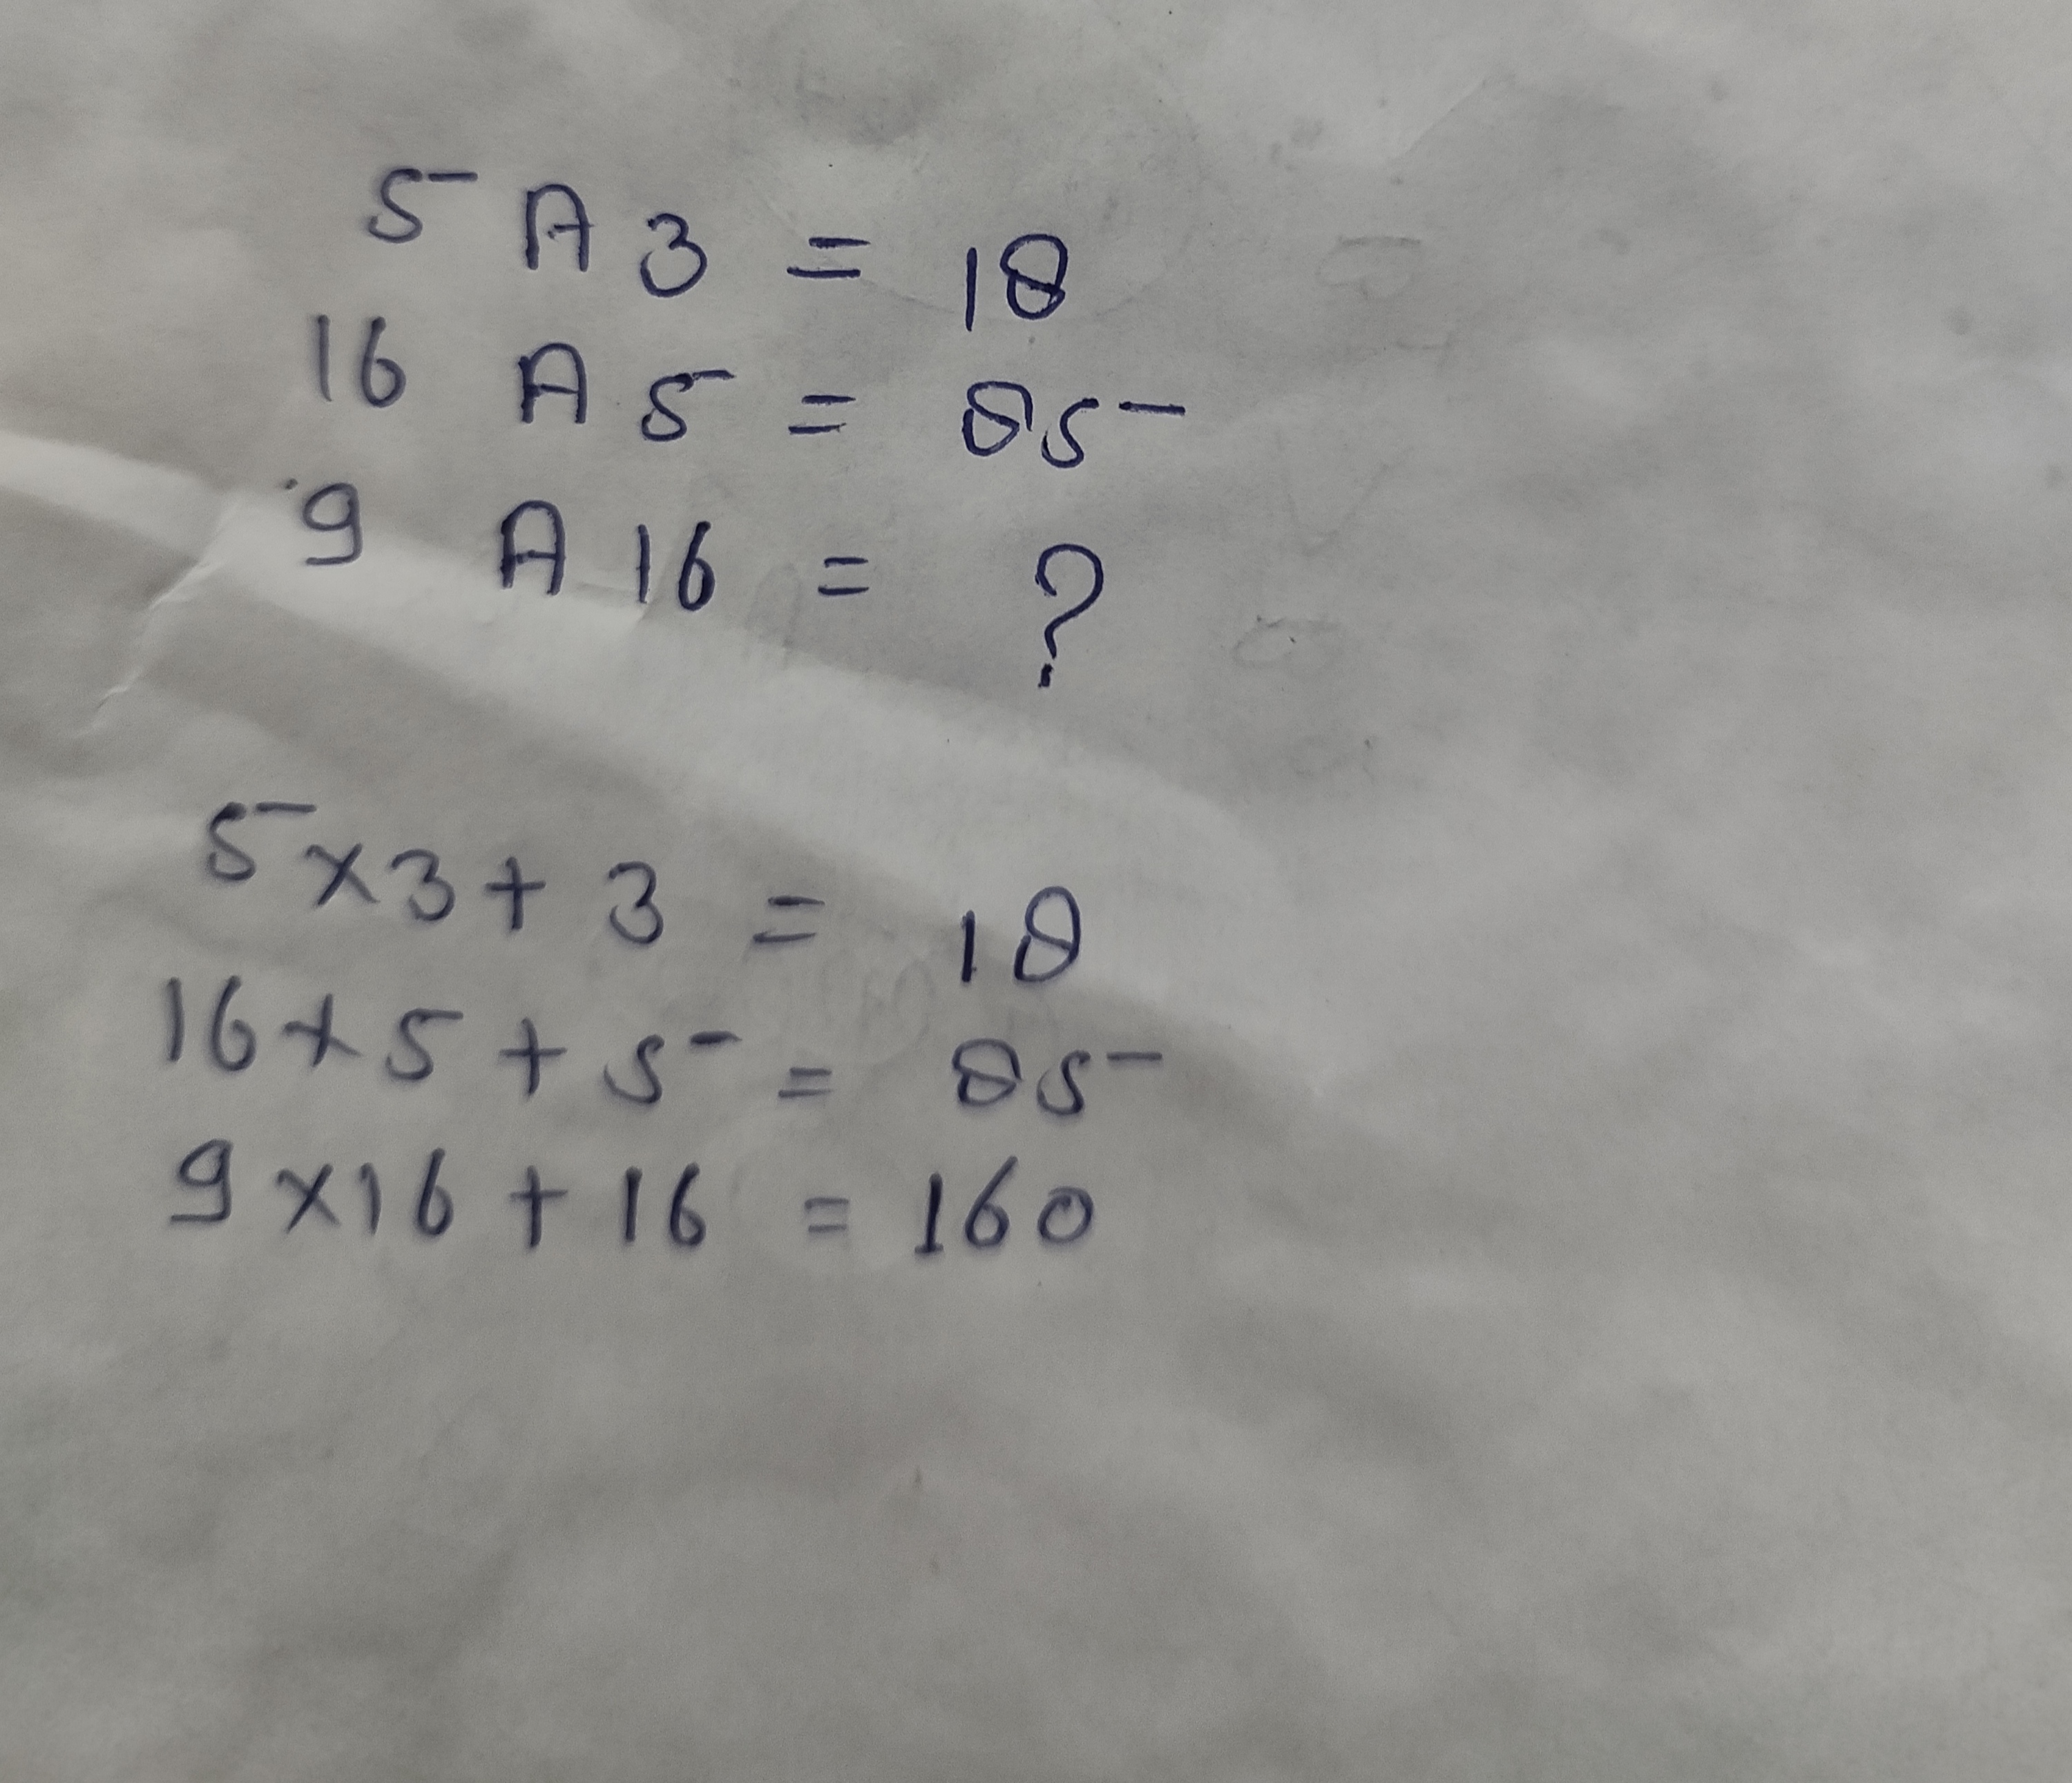 5 A 3 = 18
16 A 5 = 85
9 A 16 = ?
5×3+3 = 18
16×5+5 = 85
9×16+16 = 160